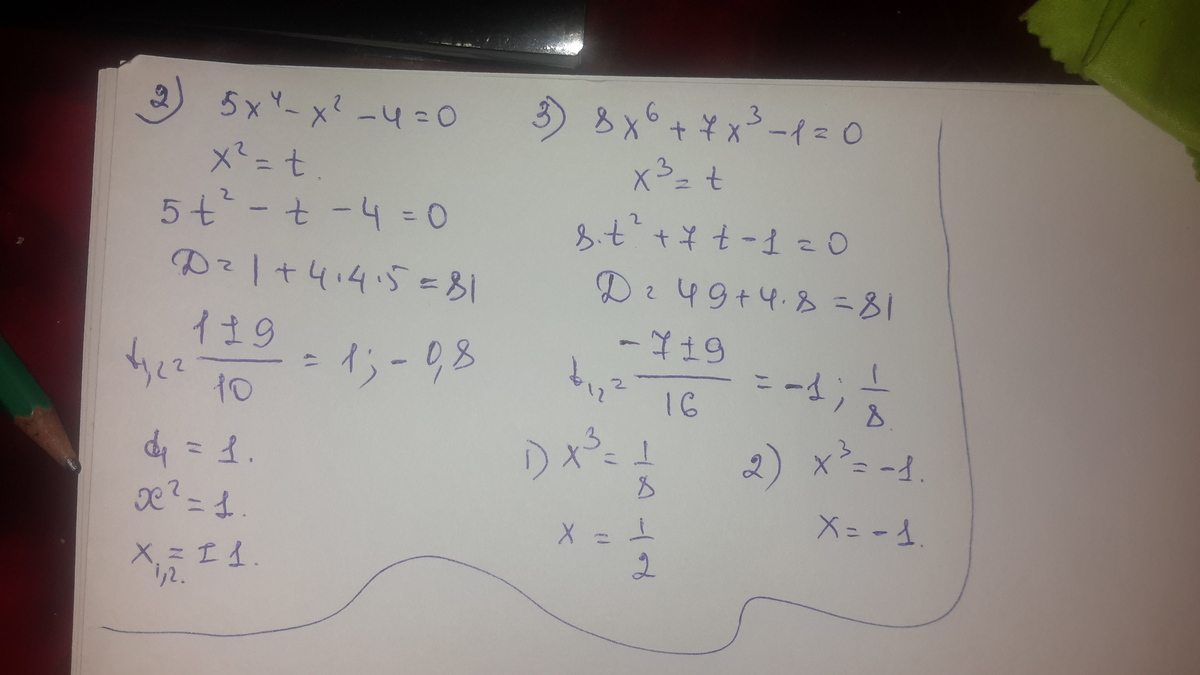 2) 5x⁴ - x² - 4 = 0
x² = t.
5t² - t - 4 = 0
D = 1 + 4·4·5 = 81
t₁,₂ = (1 ± 9)/10 = 1; -0,8
t₁ = 1.
x² = 1.
x₁,₂. = ± 1.
3) 8x⁶ + 7x³ - 1 = 0
x³ = t
8·t² + 7t - 1 = 0
D = 49 + 4·8 = 81
t₁,₂ = (-7 ± 9)/16 = -1; 1/8.
1) x³ = 1/8
x = 1/2
2) x³ = -1.
x = -1.